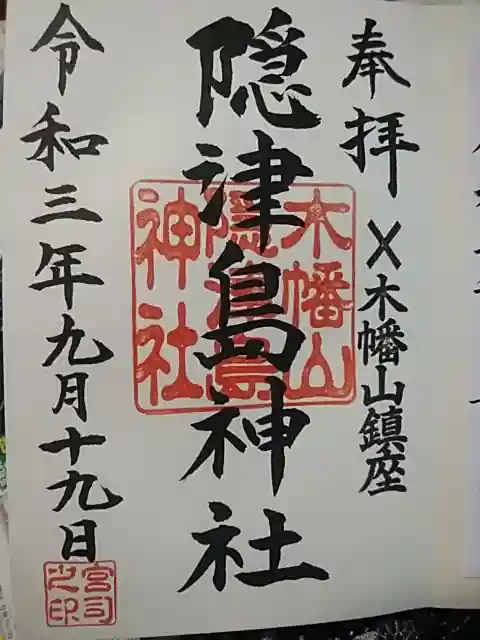 奉拝
〆木幡山鎮座
隠津島神社
木幡山
隠津島
神社
令和三年九月十九日
宮司
之印